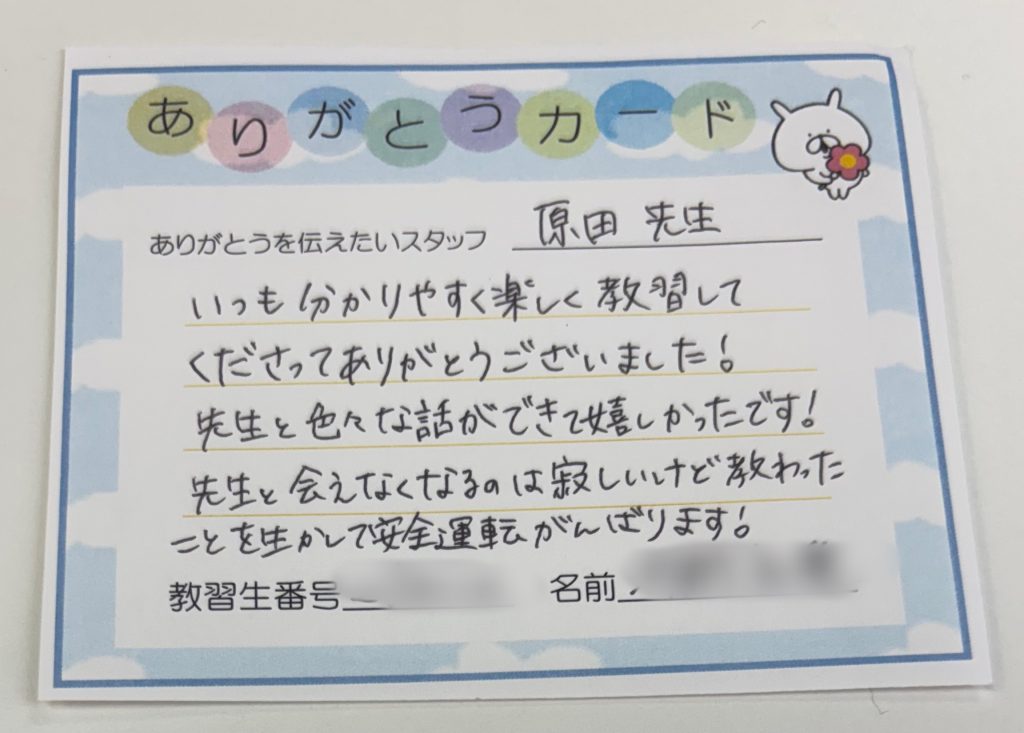 ありがとうカード
ありがとうを伝えたいスタッフ 原田 先生
いつも分かりやすく楽しく教習して
くださってありがとうございました!
先生と色々な話ができて嬉しかったです!
先生と会えなくなるのは寂しいけど教わった
ことを生かして安全運転がんばります!
教習生番号 名前